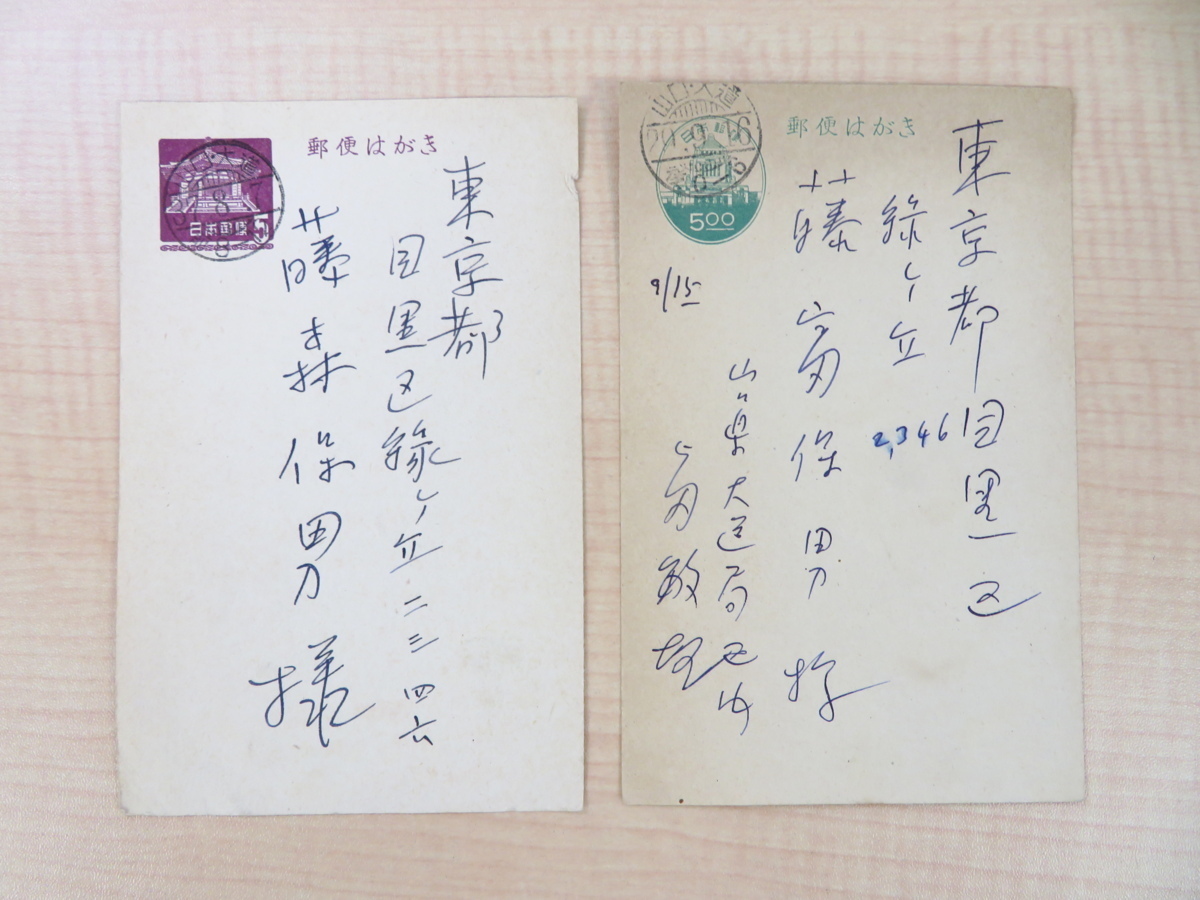 郵便はがき
東京都
目黒区緑ヶ丘二三四六
藤森保男様
日本郵便
5
山口・大道
郵便はがき
東京都目黒区
緑ヶ丘 2,346
藤富保男様
山口県大道局区内
上田敏雄
9/15
5.00
山口・大道